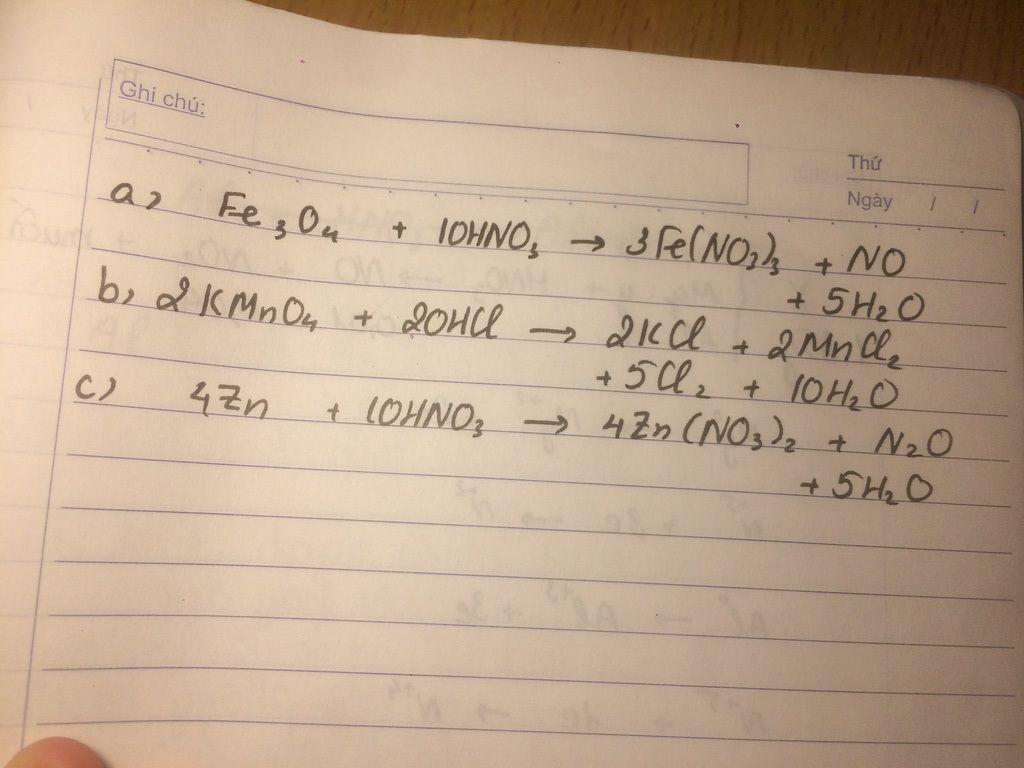 Ghi chú:
Thứ
Ngày / /
a, Fe₃O₄ + 10HNO₃ → 3Fe(NO₃)₃ + NO
+ 5H₂O
b, 2KMnO₄ + 20HCl → 2KCl + 2MnCl₂
+ 5Cl₂ + 10H₂O
c) 4Zn + 10HNO₃ → 4Zn(NO₃)₂ + N₂O
+ 5H₂O